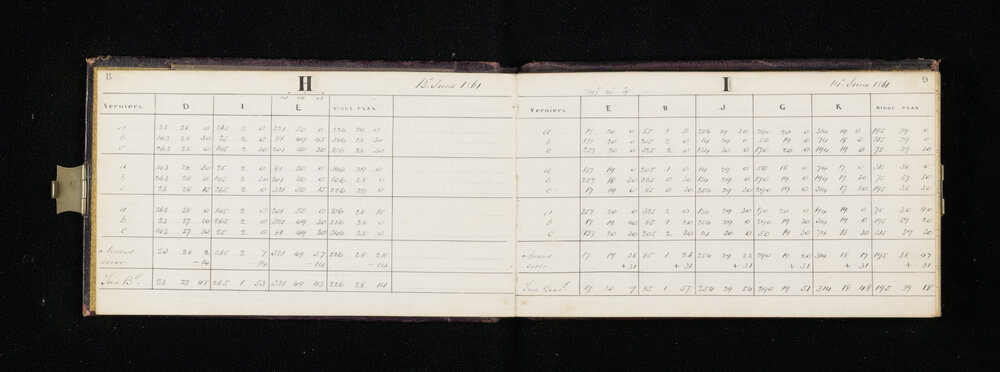 8
H
13th June 1861
Verniers D I E RIDGE PEAK
a 23 28 0 265 2 0 321 50 0 226 29 0
b 143 28 30 25 2 0 81 49 45 346 28 30
c 263 28 0 145 2 30 201 50 30 106 28 30
a 143 28 30 25 2 0 81 50 0 346 29 0
b 263 28 0 145 2 30 201 50 0 106 28 30
c 23 28 15 265 2 0 321 50 15 226 29 0
a 263 28 0 145 2 0 201 50 0 106 28 15
b 23 27 30 265 2 0 321 49 30 226 28 0
c 143 27 30 25 2 0 81 49 30 346 28 0
Means 23 28 2 265 2 7 321 49 57 226 28 28
error -14 -14 -14 -14
True Bg. 23 27 48 265 1 53 321 49 43 226 28 14
9
I
14th June 1861
Verniers E H J G K RIDGE PEAK
a 17 20 0 85 1 0 254 29 30 290 20 0 314 19 0 195 39 0
b 137 20 0 205 2 0 14 29 0 50 19 0 74 18 0 315 39 0
c 257 20 0 325 2 0 134 30 0 170 20 0 194 19 0 75 39 30
a 137 19 0 205 1 0 14 29 0 50 18 0 74 17 0 315 38 0
b 257 18 30 325 0 30 134 29 0 170 19 0 194 17 30 75 37 30
c 17 19 0 85 0 30 254 29 30 290 19 0 314 17 30 195 38 30
a 257 20 0 325 2 0 134 29 30 170 20 0 194 19 0 75 38 40
b 17 19 40 85 1 20 254 29 0 290 19 30 314 19 0 195 39 30
c 137 20 30 205 2 30 14 30 0 50 19 30 74 18 30 315 39 30
Means 17 19 36 85 1 26 254 29 23 290 19 20 314 18 17 195 38 47
error +31 +31 +31 +31 +31 +31
True Bear. 17 20 7 85 1 57 254 29 54 290 19 51 314 18 48 195 39 18